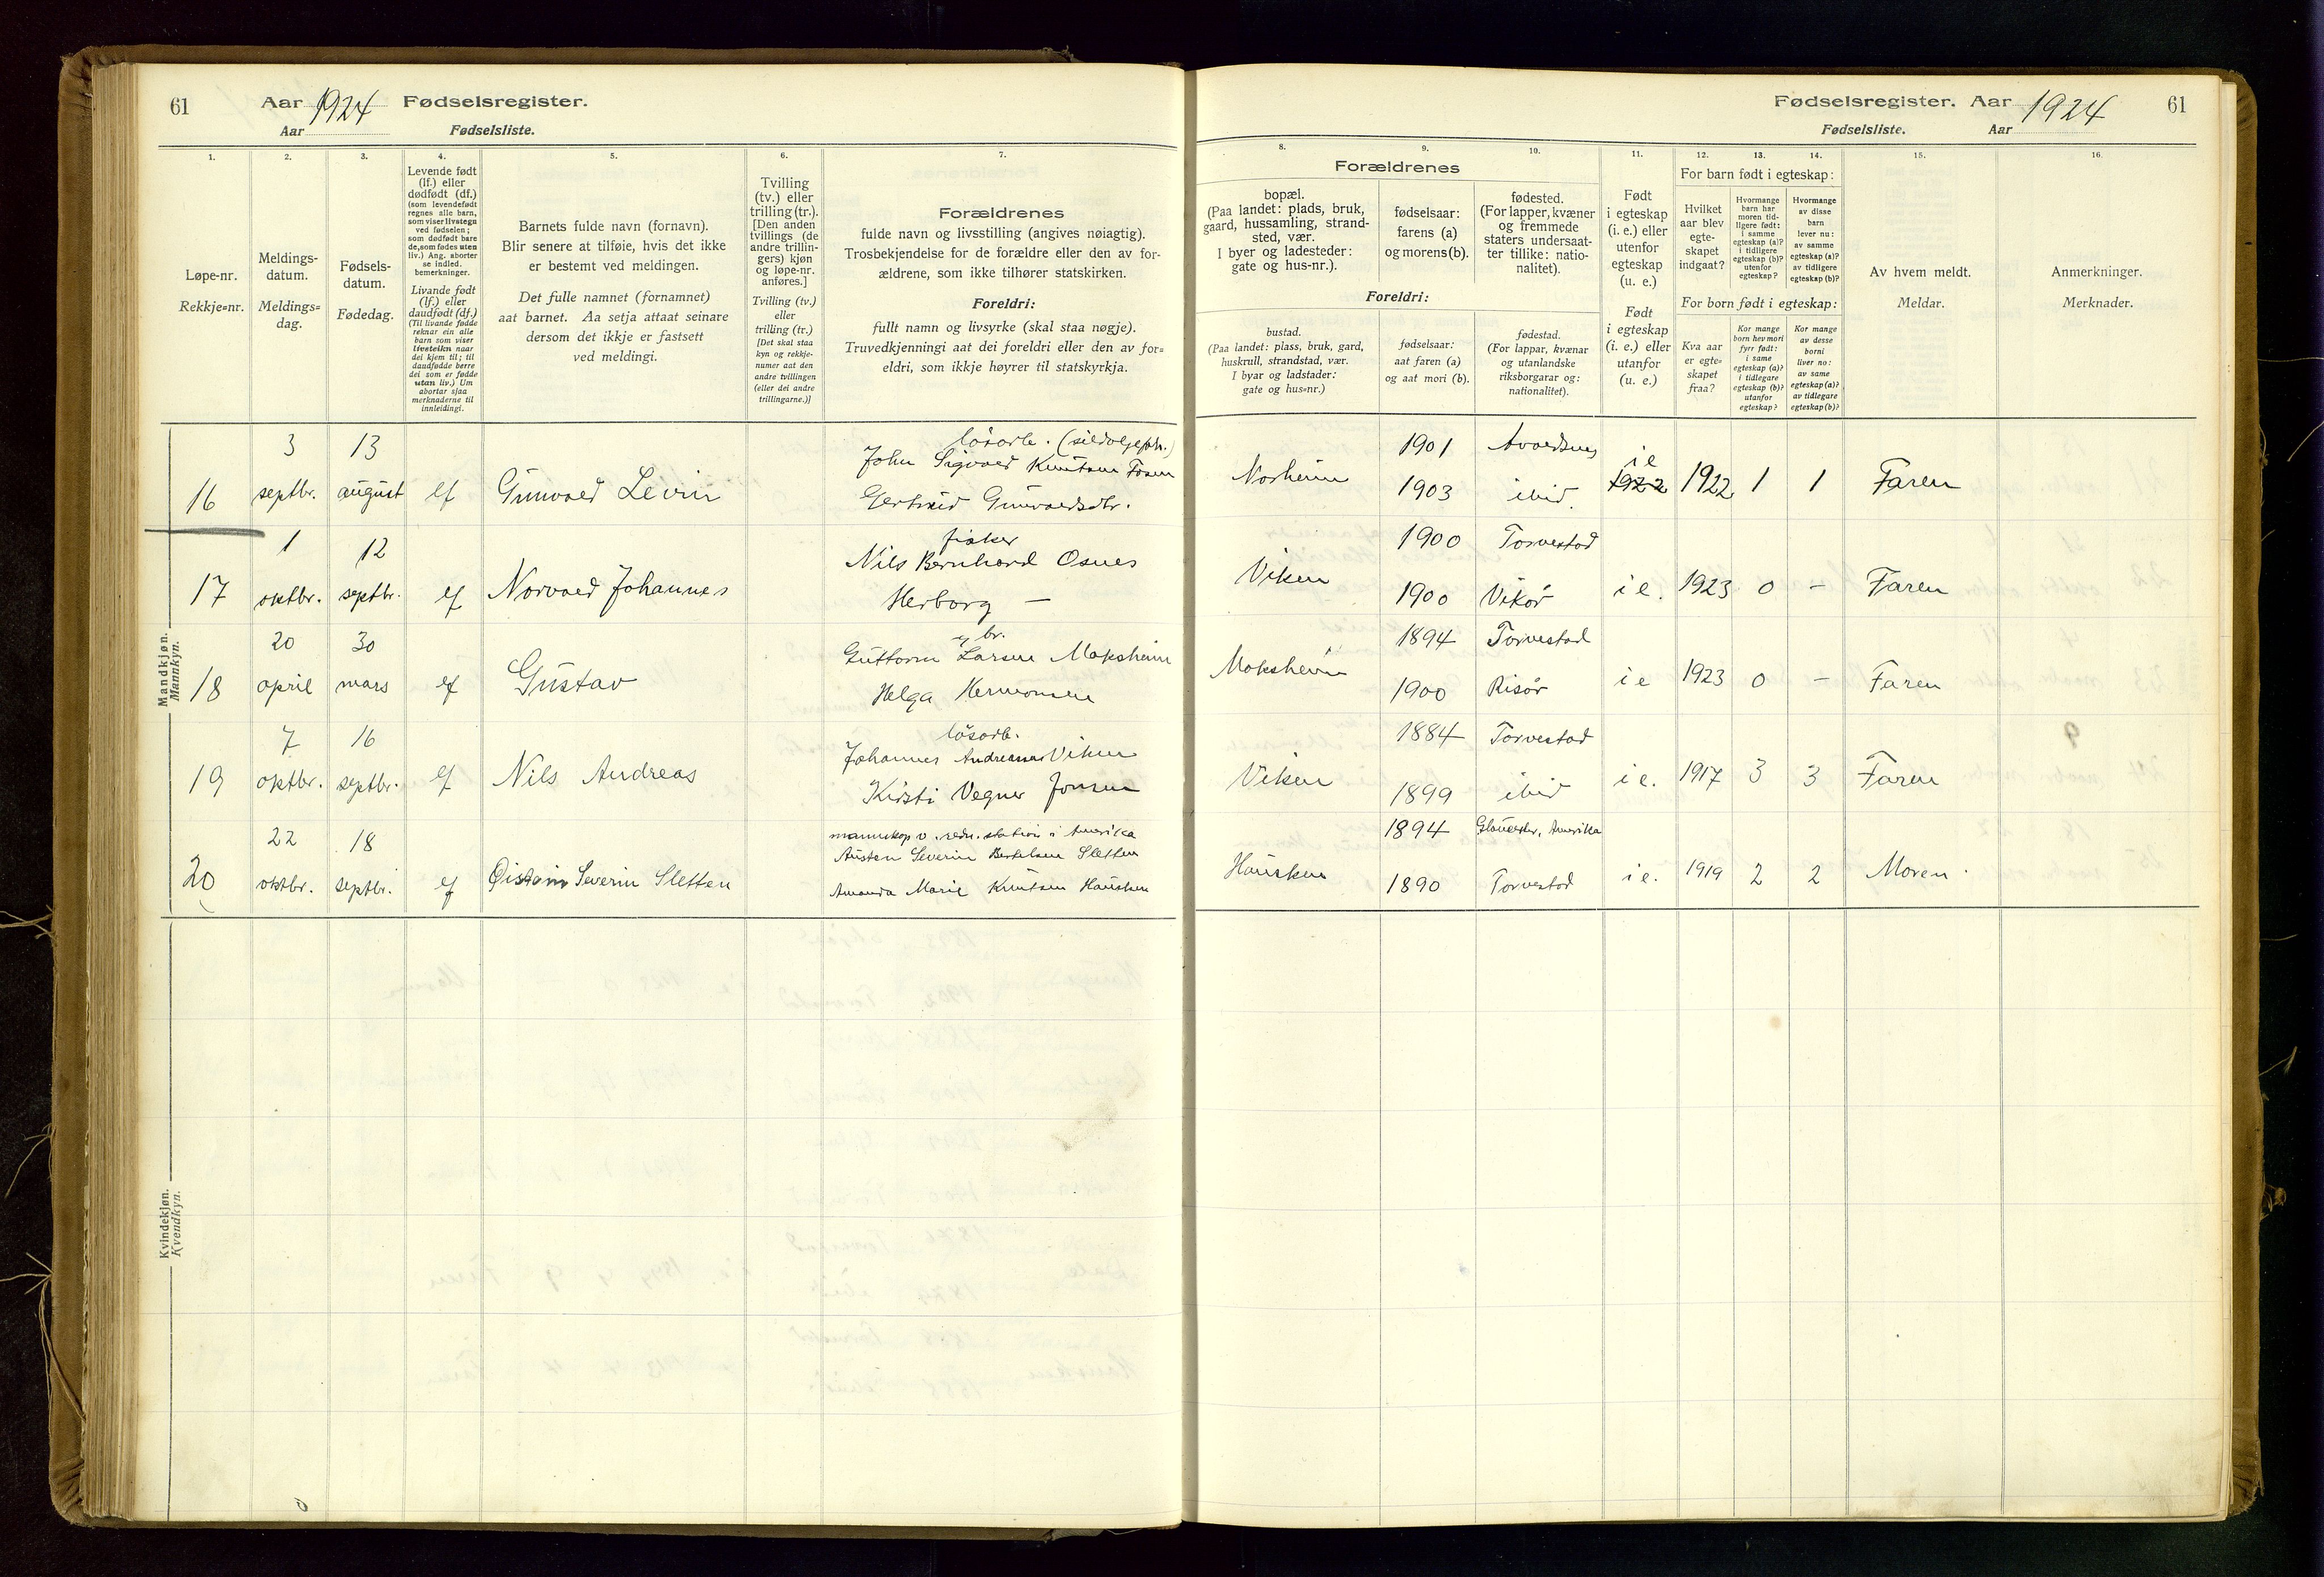 61 Aar 1924 Fødselsregister.
Aar Fødselsliste.
1.
2.
3.
4.
5.
6.
7.
Løpe-nr.
Rekkje=nr.
Meldings-
datum.
Meldings=
dag.
Fødsels-
datum.
Fødedag.
Levende født
(lf.) eller
dødfødt (df.)
(som levendefødt
regnes alle barn,
som viser livstegn
ved fødselen;
som dødfødt bare
de, som fødes uten
liv.) Ang. aborter
se indled.
bemerkninger.
Livande født
(lf.) eller
daudfødt (df.)
(Til livande fødde
reknar ein alle
barn som viser
livsteikn naar
dei kjem til; til
daudfødde berre
dei som er fødde
utan liv.) Um
abortar sjaa
merknaderne til
innleidingi.
Barnets fulde navn (fornavn).
Blir senere at tilføie, hvis det ikke
er bestemt ved meldingen.
Det fulle namnet (fornamnet)
aat barnet. Aa setja attaat seinare
dersom det ikkje er fastsett
ved meldingi.
Tvilling
(tv.) eller
trilling (tr.).
[Den anden
tvillings (de
andre trillin-
gers) kjøn
og løpe-nr.
anføres.]
Tvilling (tv.)
eller
trilling (tr.)
[Det skal staa
kyn og rekkje-
numer aat den
andre tvillingen
(eller dei andre
trillingarne.)]
Forældrenes
fulde navn og livsstilling (angives nøiagtig).
Trosbekjendelse for de forældre eller den av for-
ældrene, som ikke tilhører statskirken.
Foreldri:
fullt namn og livsyrke (skal staa nøgje).
Truvedkjenningi aat dei foreldri eller den av for=
eldri, som ikkje høyrer til statskyrkja.
Mandkjøn.
Mannkyn.
16
3
septbr.
13
august
lf
Gunvald Levin
løsarb.
John Sigvald Knutsen Fosen
Gertruid Gunvaldsdtr.
17
1
oktbr.
12
septbr.
lf
Norvald Johannes
fisker
Nils Bernhard Osnes
Herborg —
18
20
april
30
mars
lf
Gustav
br.
Guttorm Larsen Moksheim
Helga Hermansen
19
7
oktbr.
16
septbr.
lf
Nils Andreas
løsarb.
Johannes Andreassen Viken
Kirsti Vegner Jonsen
20
22
oktbr.
18
septbr.
lf
Øistein Severin Sletten
mannskap v. redn. station i Amerika
Austen Severin Bertelsen Sletten
Amanda Marie Knutsen Hausken
Kvindekjøn.
Kvendkyn.
Fødselsregister. Aar 1924 61
Fødselsliste. Aar
8.
9.
10.
11.
12.
13.
14.
15.
16.
Forældrenes
bopæl.
(Paa landet: plads, bruk,
gaard, hussamling, strand-
sted, vær.
I byer og ladesteder:
gate og hus-nr.).
fødselsaar:
farens (a)
og morens (b).
fødested.
(For lapper, kvæner
og fremmede
staters undersaat-
ter tillike: natio-
nalitet).
Foreldri:
bustad.
(Paa landet: plass, bruk, gard,
huskrull, strandstad, vær.
I byar og ladstader:
gate og hus=nr.)
fødselsaar:
aat faren (a)
og aat mori (b).
fødestad.
(For lappar, kvænar
og utanlandske
riksborgarar og:
nationalitet).
Født
i egteskap
(i. e.) eller
utenfor
egteskap
(u. e.)
Født
i egteskap
(i. e.) eller
utanfor
(u. e.)
For barn født i egteskap:
Hvilket
aar blev
egte-
skapet
indgaat?
Hvormange
barn har
moren tid-
ligere født:
i samme
egteskap (a)?
i tidligere
egteskap (b)?
utenfor
egteskap?
Hvormange
av disse
barn
lever nu:
av samme
egteskap (a)?
av tidligere
egteskap (b)?
For born født i egteskap:
Kva aar
er egte=
skapet
fraa?
Kor mange
born hev mori
fyrr født:
i same
egteskap (a)?
i tidlegare
egteskap (b)?
utanfor
egteskap?
Kor mange
av desse
borni
liver no:
av same
egteskap (a)?
av tidlegare
egteskap (b)?
Av hvem meldt.
Meldar.
Anmerkninger.
Merknader.
Norheim
1901
1903
Avaldsnes
ibid.
i e
1922
1922
1
1
Faren
Viken
1900
1900
Torvestad
Vikør
i e.
1923
0
–
Faren
Moksheim
1894
1900
Torvestad
Risør
i e
1923
0
–
Faren
Viken
1884
1899
Torvestad
ibid
i e.
1917
3
3
Faren
Hausken
1894
1890
Gloucester, Amerika
Torvestad
i e.
1919
2
2
Moren